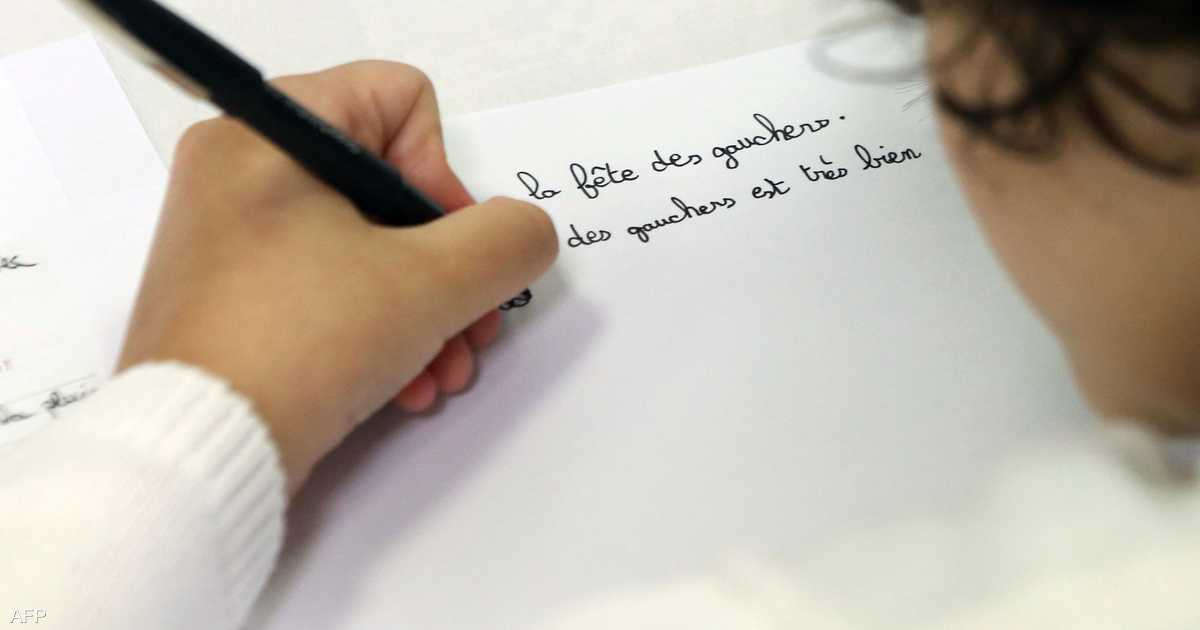 la fête des gauchers.
des gauchers est très bien
la
AFP